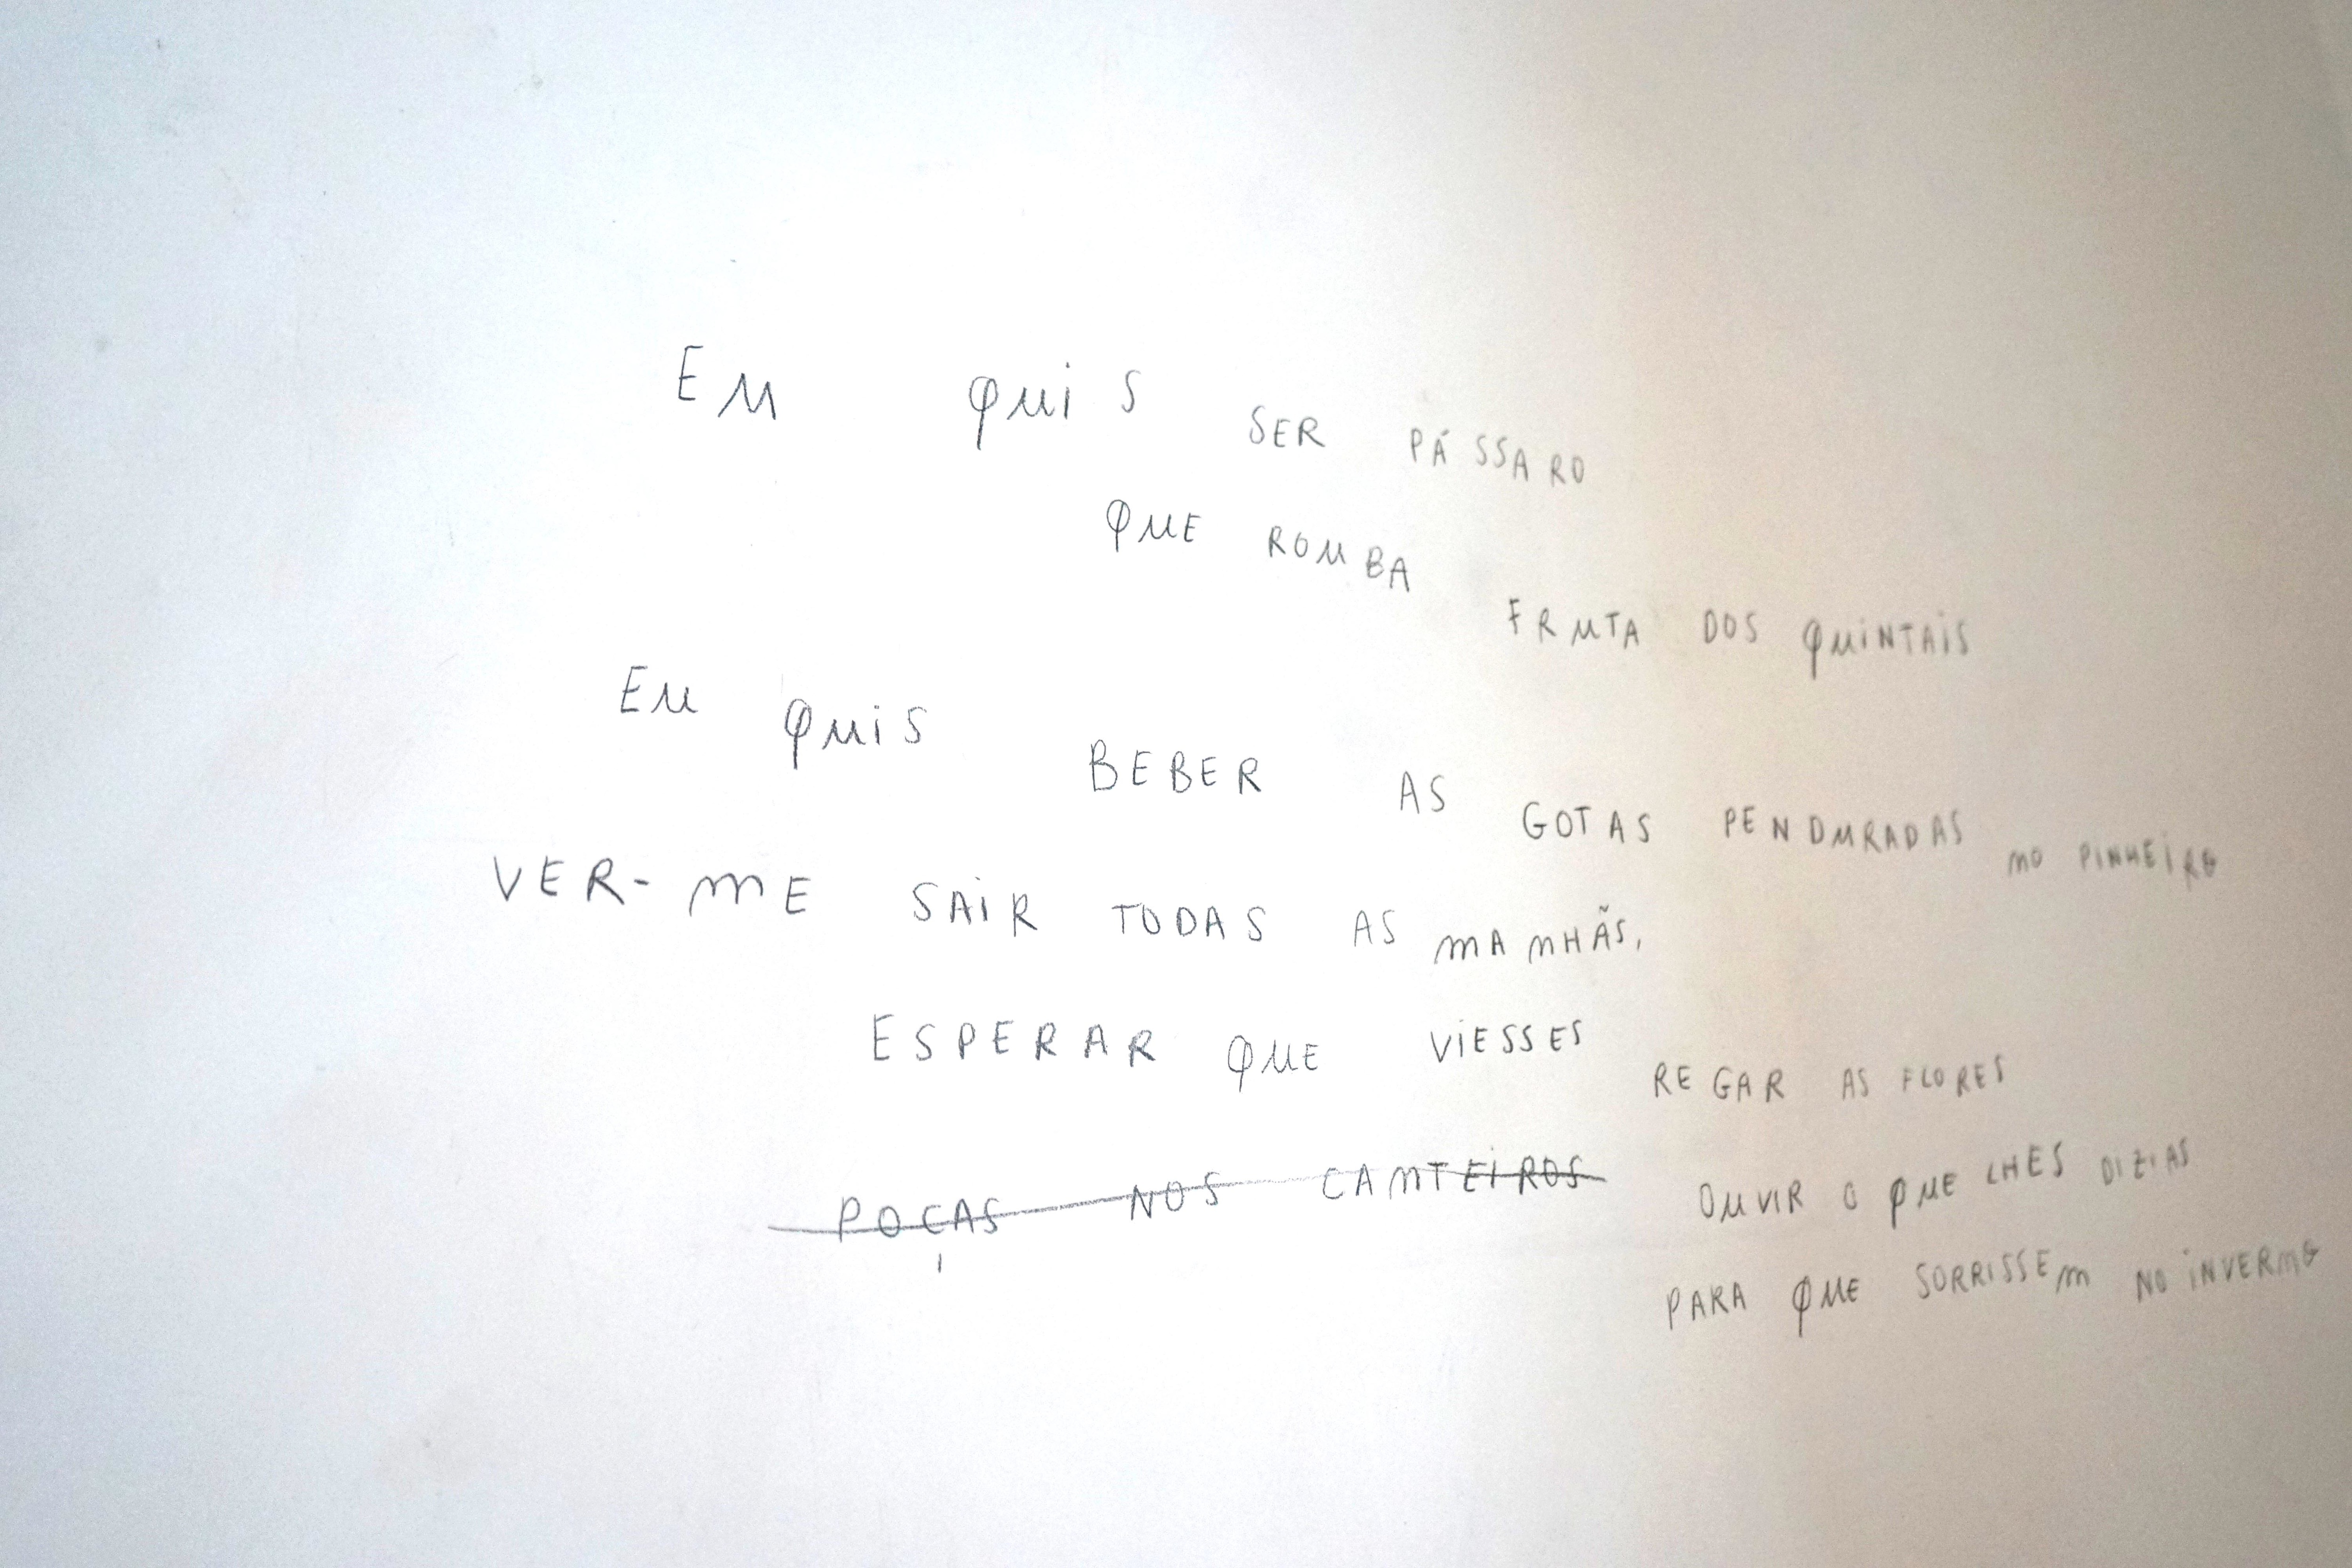 EU QUIS SER PÁSSARO
QUE ROUBA
FRUTA DOS QUINTAIS
EU QUIS BEBER AS GOTAS PENDURADAS NO PINHEIRO
VER-ME SAIR TODAS AS MANHÃS,
ESPERAR QUE VIESSES REGAR AS FLORES
POÇAS NOS CANTEIROS
OUVIR O QUE LHES DIZIAS
PARA QUE SORRISSEM NO INVERNO